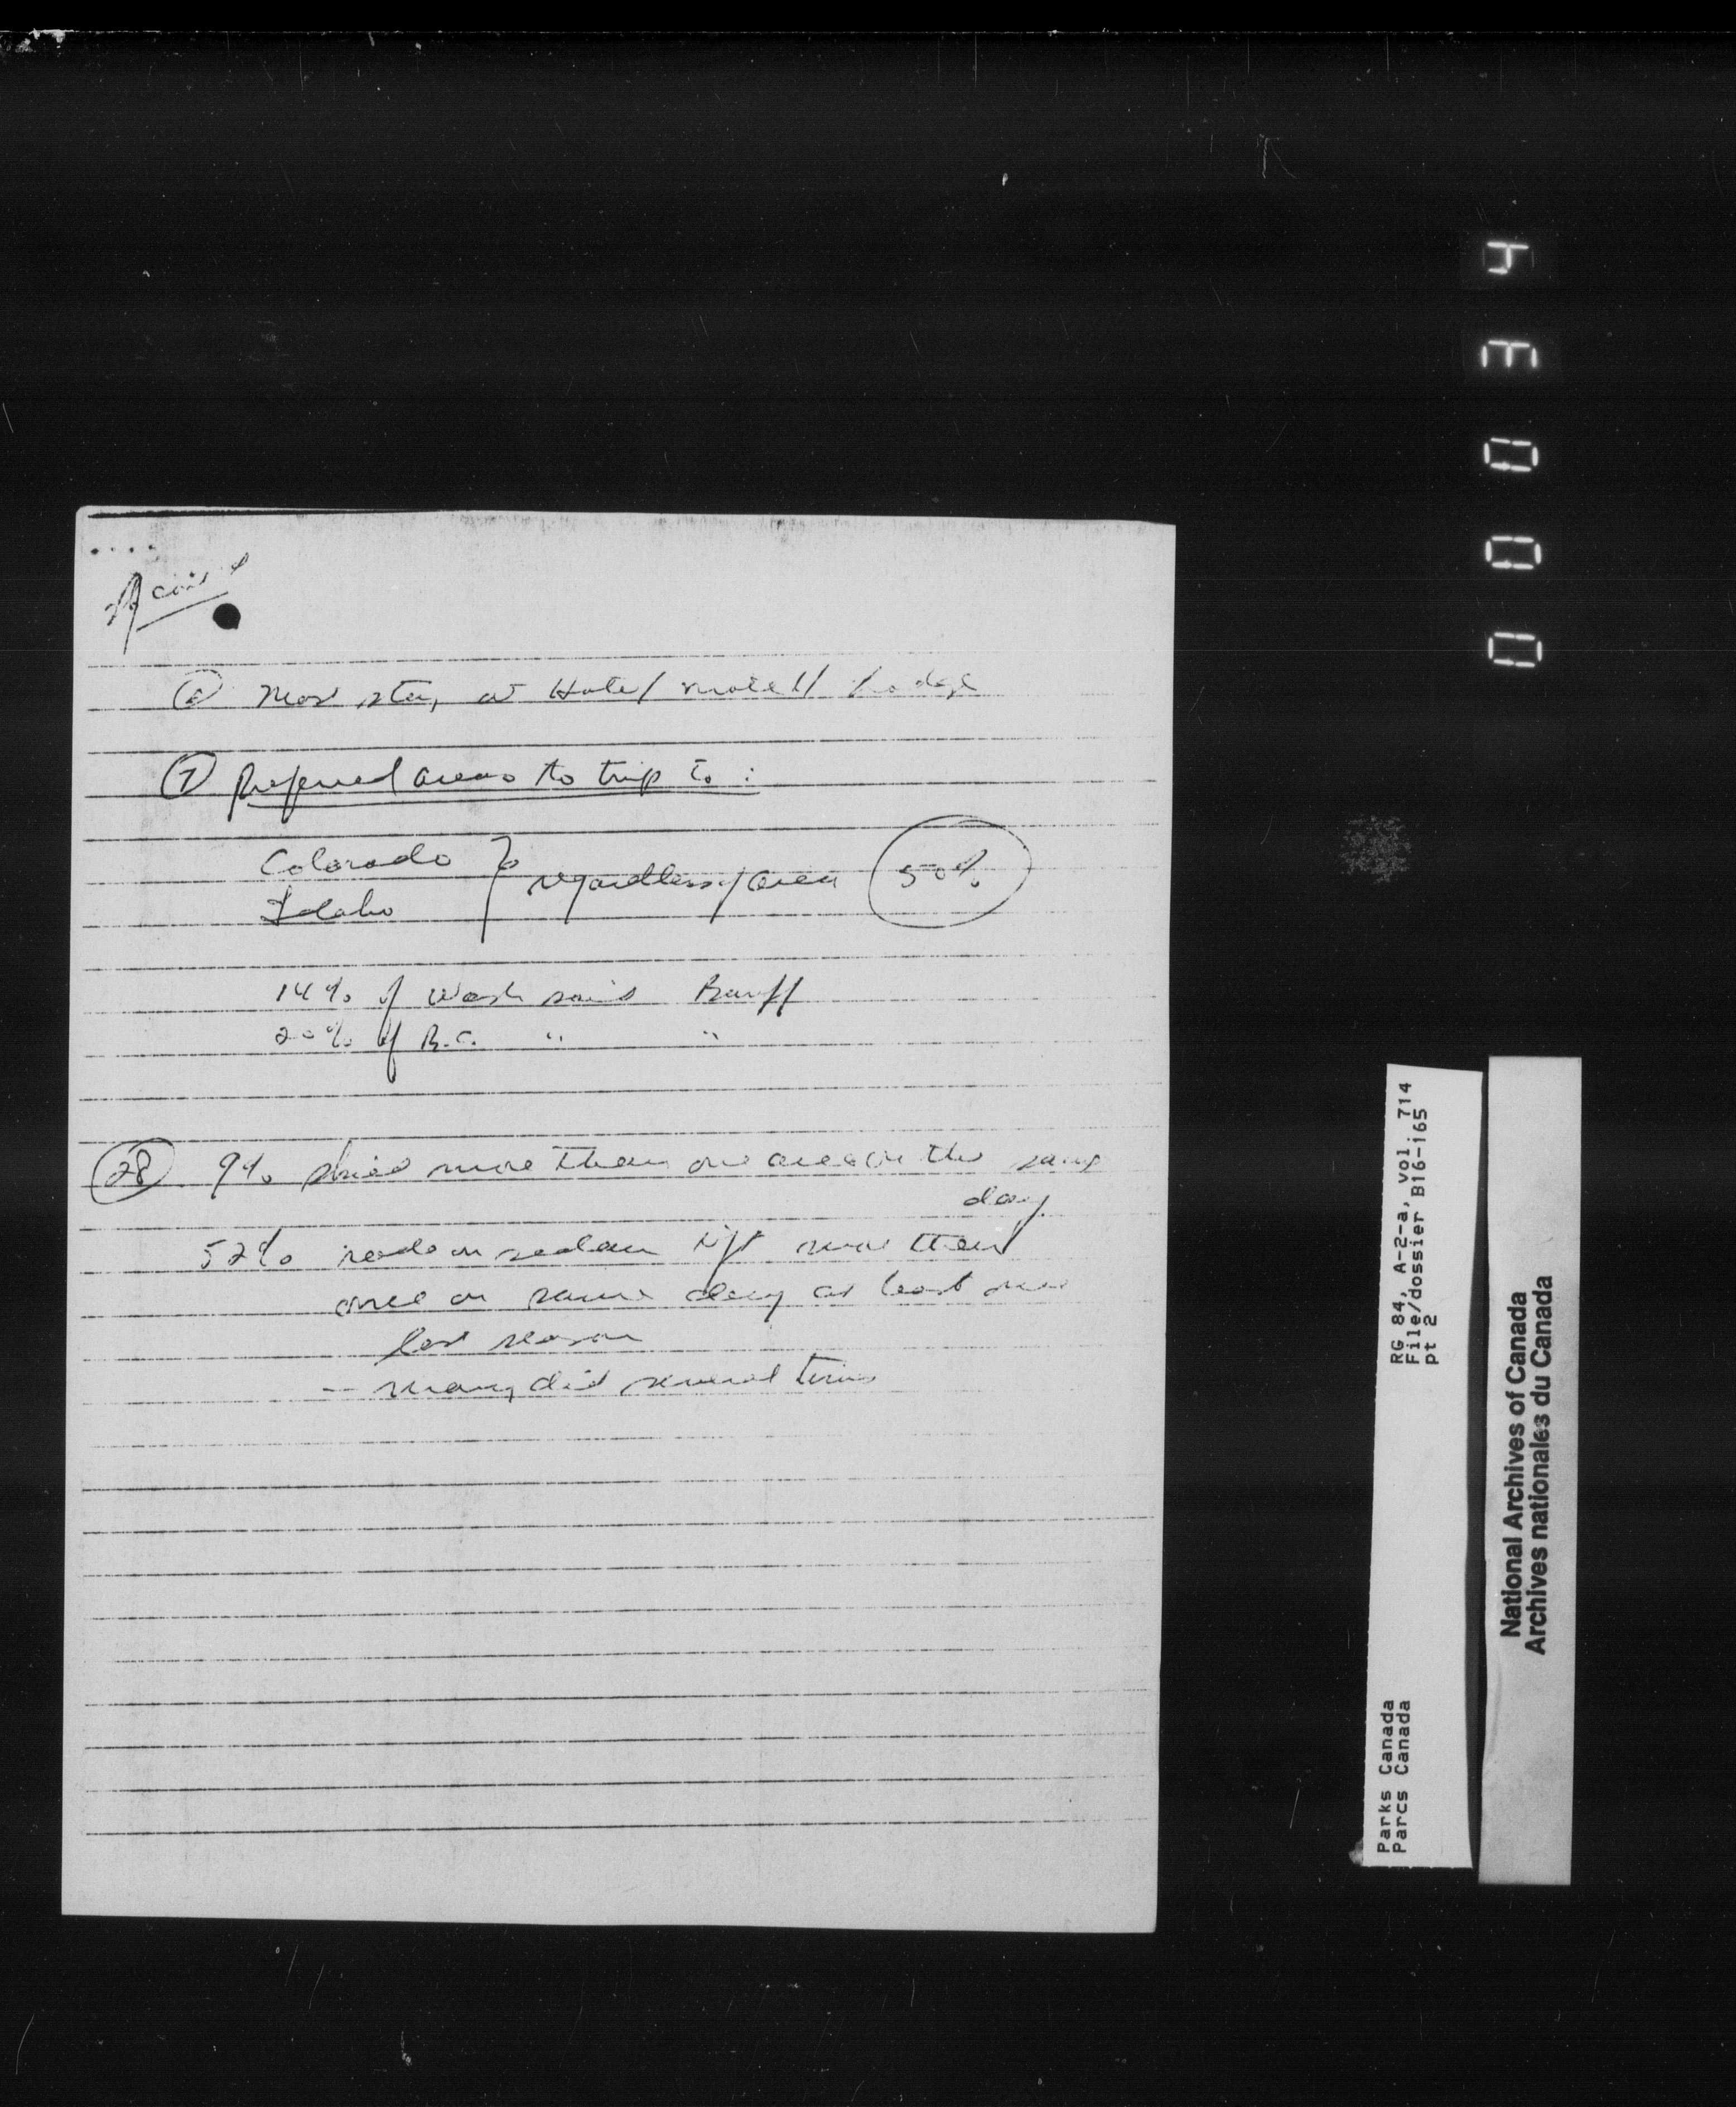 ⑥ Most stay at Hotel/motel/lodge
⑦ Preferred areas to trip to :
Colorado } regardless of area 50%
Idaho
14% of Wash said Banff
20% of B.C. " "
㉘ 9% skied more than one area on the same
day
52% rode on lift more than
once on same day at least once
last season
-- many did several times
43000
RG 84, A-2-a, vol. 714
File/dossier B16-165
pt 2
Parks Canada
Parcs Canada
National Archives of Canada
Archives nationales du Canada